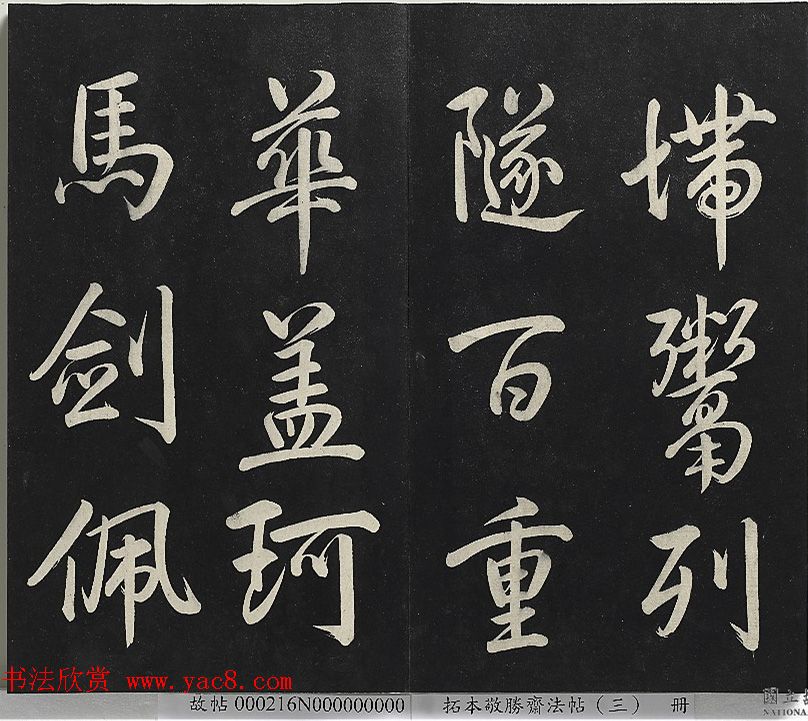 墆鬻列
隧百重
華盖珂
馬劍佩
书法欣赏 www.yac8.com
故帖 000216N000000000 拓本敬勝齋法帖（三） 册
國立
NATIONA